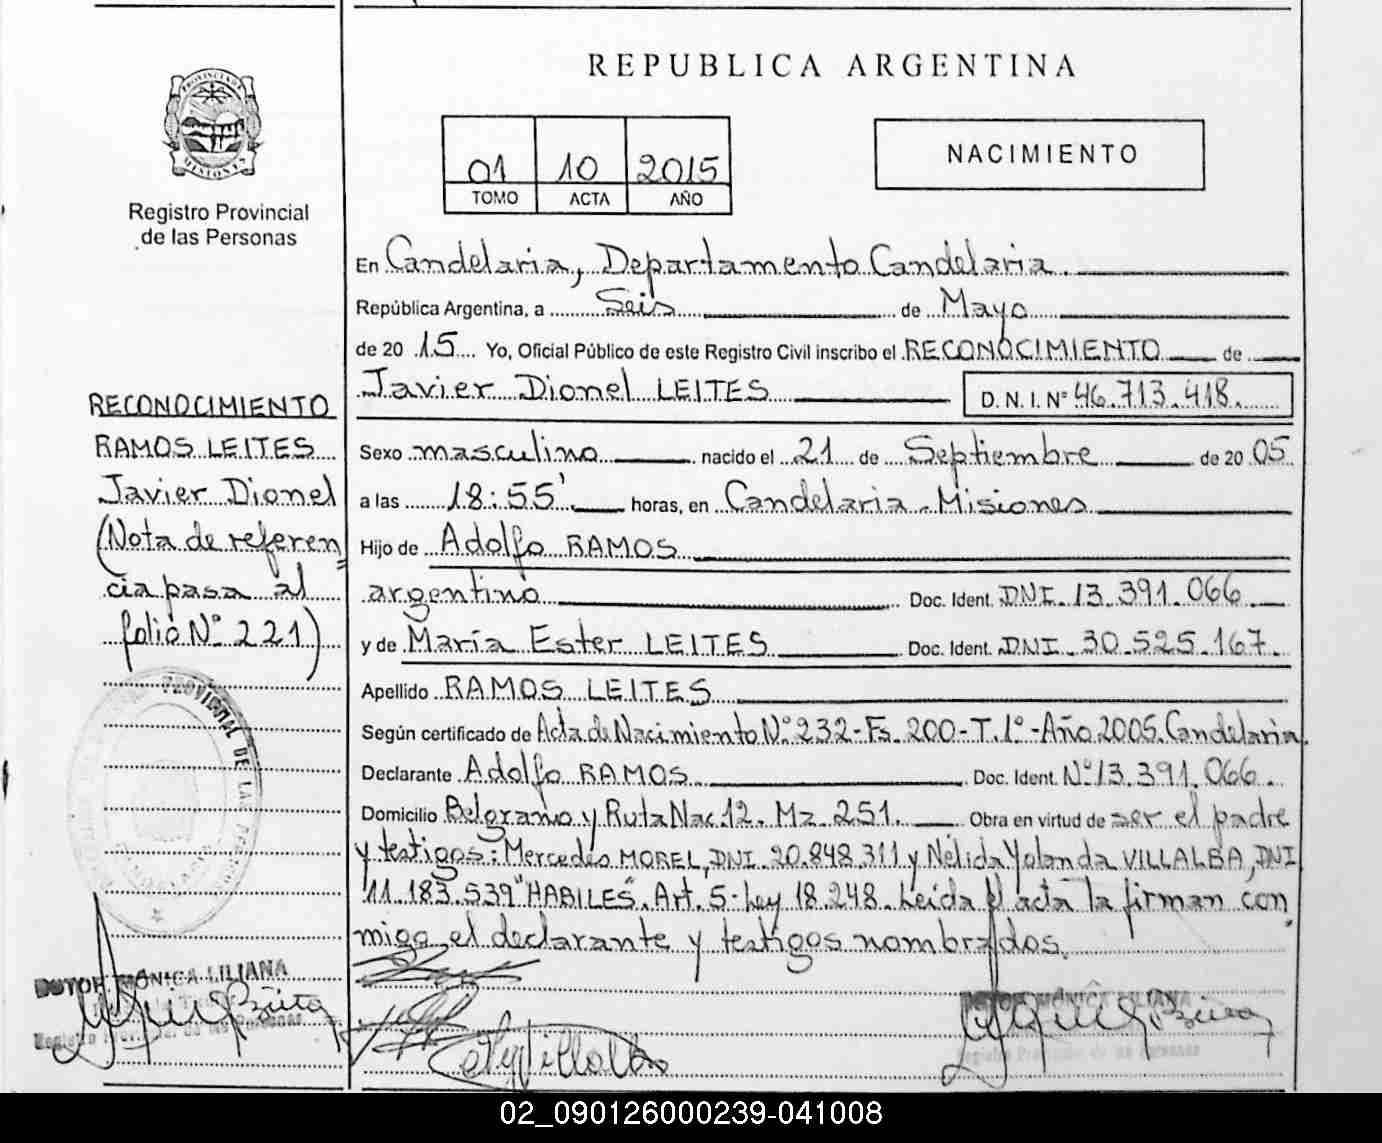 REPUBLICA ARGENTINA
PROVINCIA DE
MISIONES
Registro Provincial
de las Personas
01 10 2015
TOMO ACTA AÑO
NACIMIENTO
En Candelaria, Departamento Candelaria.
República Argentina, a Seis de Mayo
de 20 15 Yo, Oficial Público de este Registro Civil inscribo el RECONOCIMIENTO de
Javier Dionel LEITES D. N. I. N° 46.713.418.
Sexo masculino nacido el 21 de Septiembre de 20 05
a las 18:55' horas, en Candelaria - Misiones
Hijo de Adolfo RAMOS
argentino Doc. Ident. DNI. 13.391.066
y de María Ester LEITES Doc. Ident. DNI. 30.525.167.
Apellido RAMOS LEITES
Según certificado de Acta de Nacimiento N° 232-Fs. 200-T. 1°-Año 2005. Candelaria
Declarante Adolfo RAMOS Doc. Ident. N° 13.391.066.
Domicilio Belgrano y Ruta Nac. 12. Mz. 251. Obra en virtud de ser el padre
y testigos: Mercedes MOREL, DNI. 20.848.311 y Nélida Yolanda VILLALBA, DNI
11.183.539 "HABILES". Art. 5-Ley 18.248. Leída el acta la firman con
migo, el declarante y testigos nombrados.
RECONOCIMIENTO
RAMOS LEITES
Javier Dionel
(Nota de referen
cia pasa al
folio N° 221)
PROVINCIAL DE LAS PERSONAS
CANDELARIA
DUTOR MÓNICA LILIANA
Registro Provincial de las Personas
Villalba
DUTOR MÓNICA LILIANA
Registro Provincial de las Personas
02_090126000239-041008